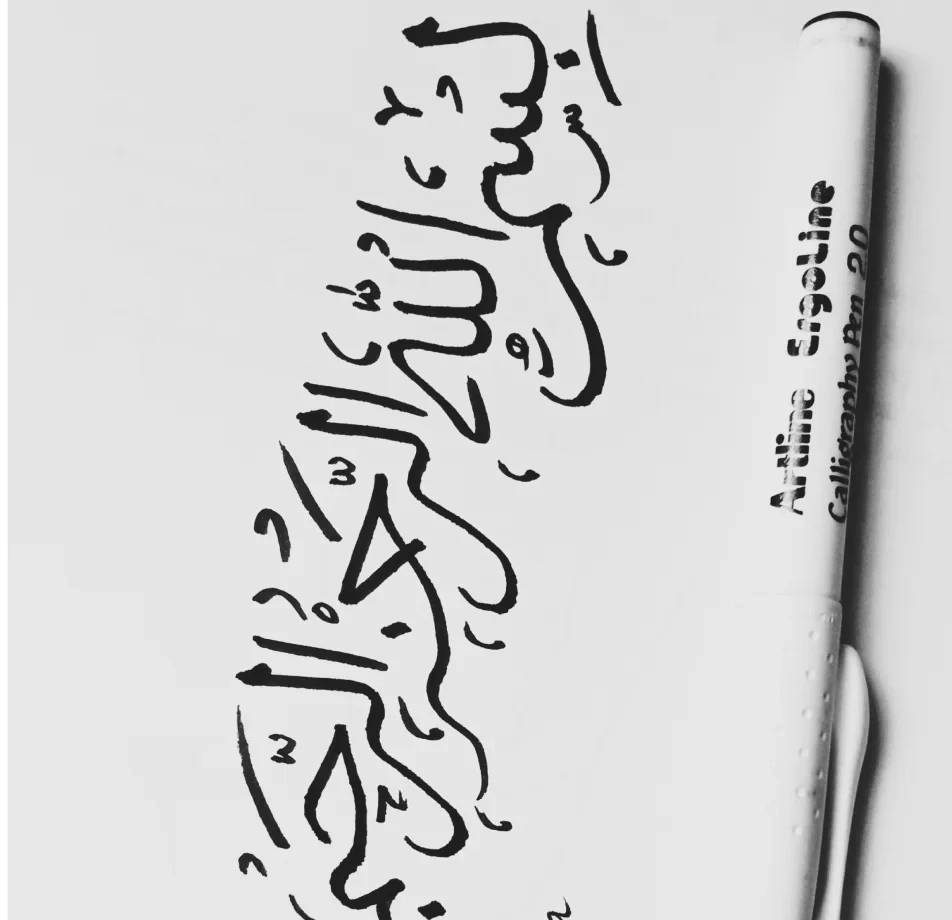 بسم الله الرحمن الرحيم
Artline ErgoLine
Calligraphy Pen 2.0